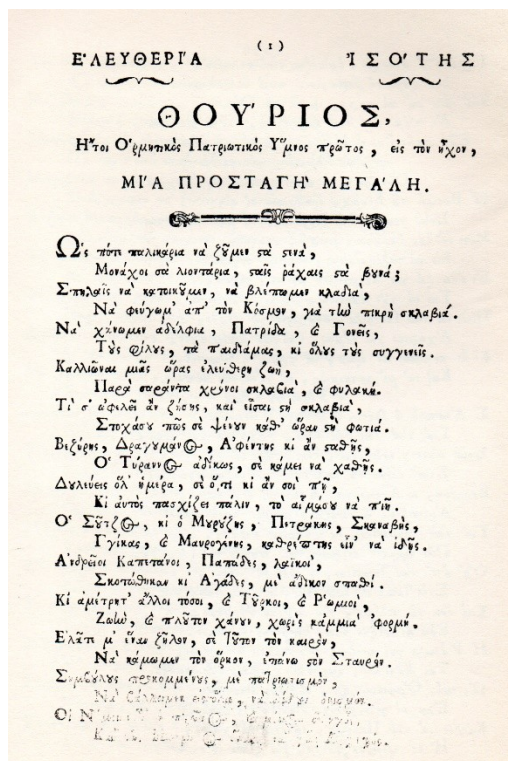 (1)
ἘΛΕΥΘΕΡΊΑ ἸΣΌΤΗΣ
ΘΟΎΡΙΟΣ,
Ἤτοι Ὁρμητικὸς Πατριωτικὸς Ὕμνος πρῶτος, εἰς τὸν ἦχον,
ΜΊΑ ΠΡΟΣΤΑΓῊ ΜΕΓΆΛΗ.
Ὡς πότε παλικάρια νὰ ζοῦμεν στὰ στενὰ,
Μονάχοι σὰ λιοντάρια, σταῖς ράχαις στὰ βουνά;
Σπηλαῖς νὰ κατοικοῦμεν, νὰ βλέπωμεν κλαδιὰ,
Νὰ φεύγωμ' ἀπ' τὸν Κόσμον, γιὰ τὴν πικρὴ σκλαβιά.
Νὰ χάνωμεν ἀδέλφια, Πατρίδα, καὶ Γονεῖς,
Τοὺς φίλους, τὰ παιδιάμας, κι ὅλους τοὺς συγγενεῖς.
Καλλιῶναι μιᾶς ὥρας ἐλεύθερη ζωὴ,
Παρὰ σαράντα χρόνοι σκλαβιὰ, καὶ φυλακή.
Τί σ' ὠφελεῖ ἂν ζήσῃς, καὶ εἶσαι στὴ σκλαβιὰ,
Στοχάσου πῶς σὲ ψένουν καθ' ὥραν στὴ φωτιά.
Βεζύρης, Δραγουμάνος, Ἀφέντης κι ἂν σταθῇς,
Ὁ Τύραννος ἀδίκως, σὲ κάμει νὰ χαθῇς.
Δουλεύεις ὅλ' ἡμέρα, σὲ ὅ,τι κι ἂν σοὶ πῇ,
Κι αὐτὸς πασχίζει πάλιν, τὸ αἷμάσου νὰ πιῇ.
Ὁ Σοῦτζος, κι ὁ Μουρούζης, Πετράκης, Σκαναβὴς,
Γγίκας, καὶ Μαυρογένης, καθρέπτης εἶν' νὰ ἰδῇς.
Ἀνδρεῖοι Καπετάνοι, Παπάδες, λαϊκοὶ,
Σκοτώθηκαν κι Ἀγάδες, μὲ ἄδικον σπαθί.
Κι ἀμέτρητ' ἄλλοι τόσοι, καὶ Τοῦρκοι, καὶ Ῥωμιοὶ,
Ζωὴν, καὶ πλοῦτον χάνουν, χωρὶς κάμμιὰ 'φορμή.
Ἐλᾶτε μ' ἕναν ζῆλον, σὲ τοῦτον τὸν καιρὸν,
Νὰ κάμωμεν τὸν ὅρκον, ἐπάνω στὸν Σταυρόν.
Συμβούλους προκομμένους, μὲ πατριωτισμὸν,
Νὰ βάλλωμεν